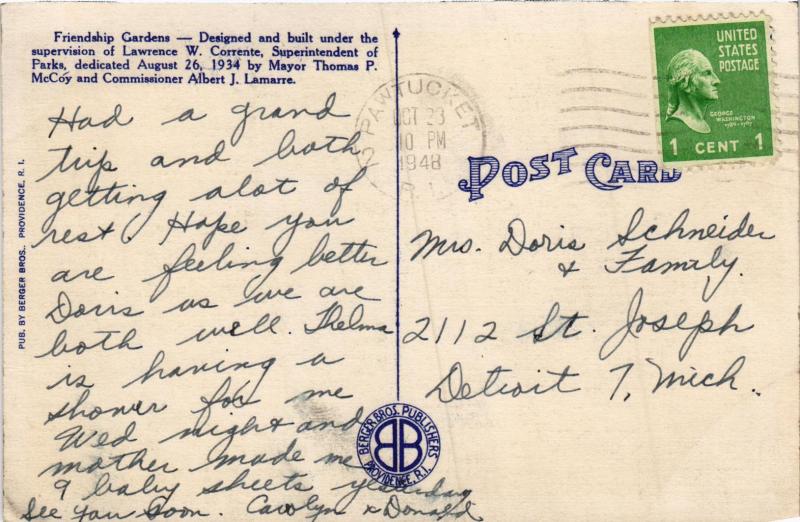 Friendship Gardens — Designed and built under the
supervision of Lawrence W. Corrente, Superintendent of
Parks, dedicated August 26, 1934 by Mayor Thomas P.
McCoy and Commissioner Albert J. Lamarre.
Had a grand
trip and both
getting alot of
rest. Hope you
are feeling better
Doris as we are
both well. Thelma
is having a
shower for me
Wed night and
mother made me
9 baby sheets yesterday
See you soon. Carolyn & Donald
PUB. BY BERGER BROS., PROVIDENCE, R. I.
PAWTUCKET
OCT 23
10 PM
1948
R. I.
UNITED
STATES
POSTAGE
GEORGE
WASHINGTON
1789-1797
1 CENT 1
POST CARD
Mrs. Doris Schneider
& Family.
2112 St. Joseph
Detroit 7, Mich.
BERGER BROS. PUBLISHERS
BB
PROVIDENCE, R.I.